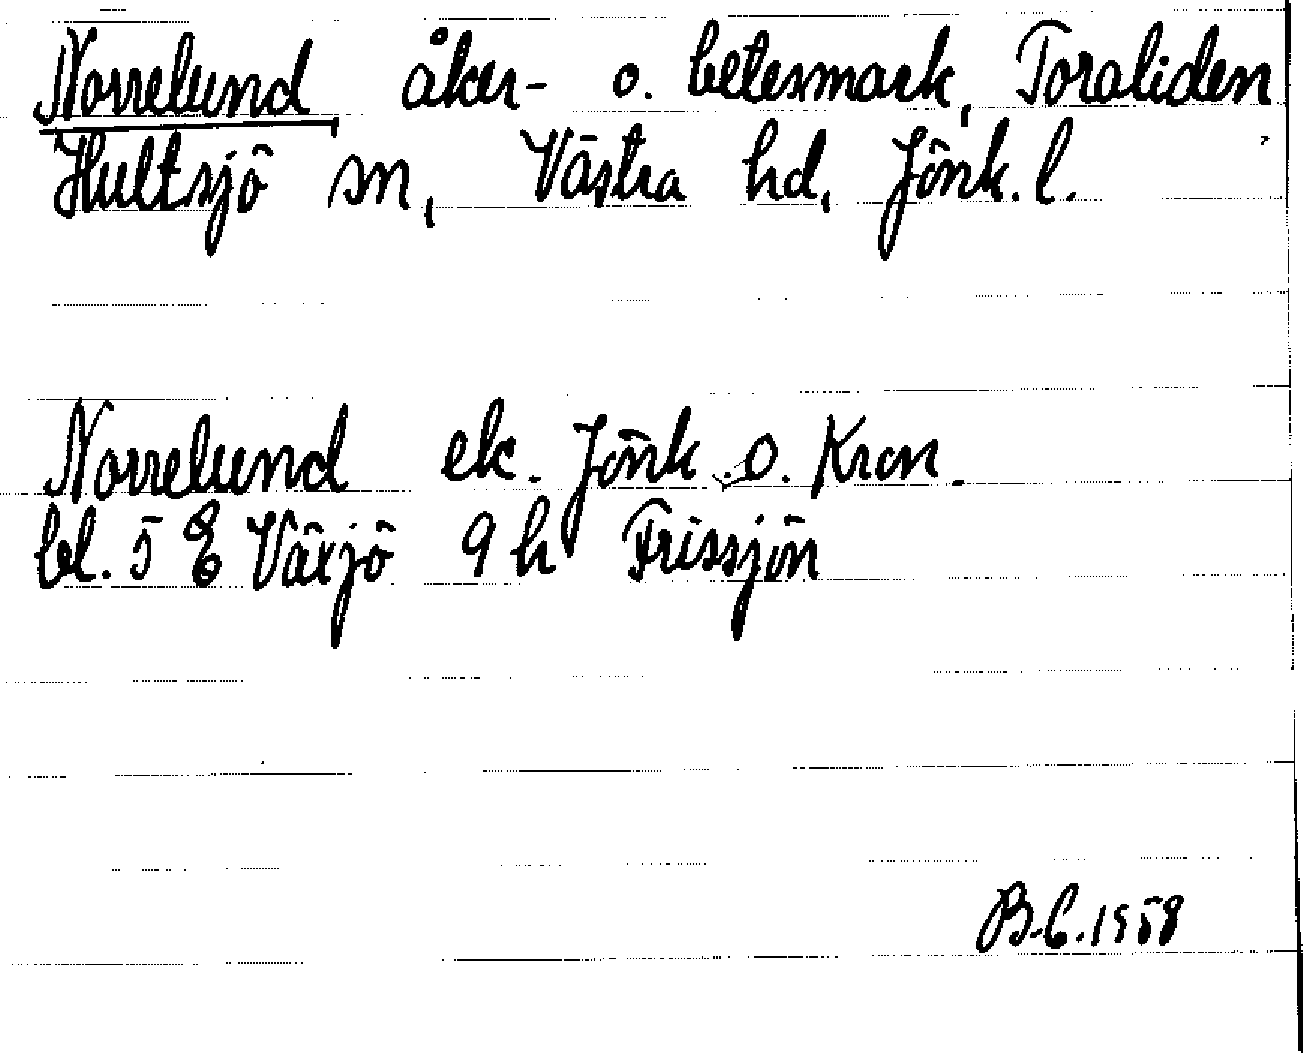 Norrelund, åker- o. betesmark, Toraliden,
Hultsjö sn, Västra hd, Jönk. l.
Norrelund ek. Jönk. o. Kron.
bl. 5 E Växjö 9 h Frissjön
B.C. 1958